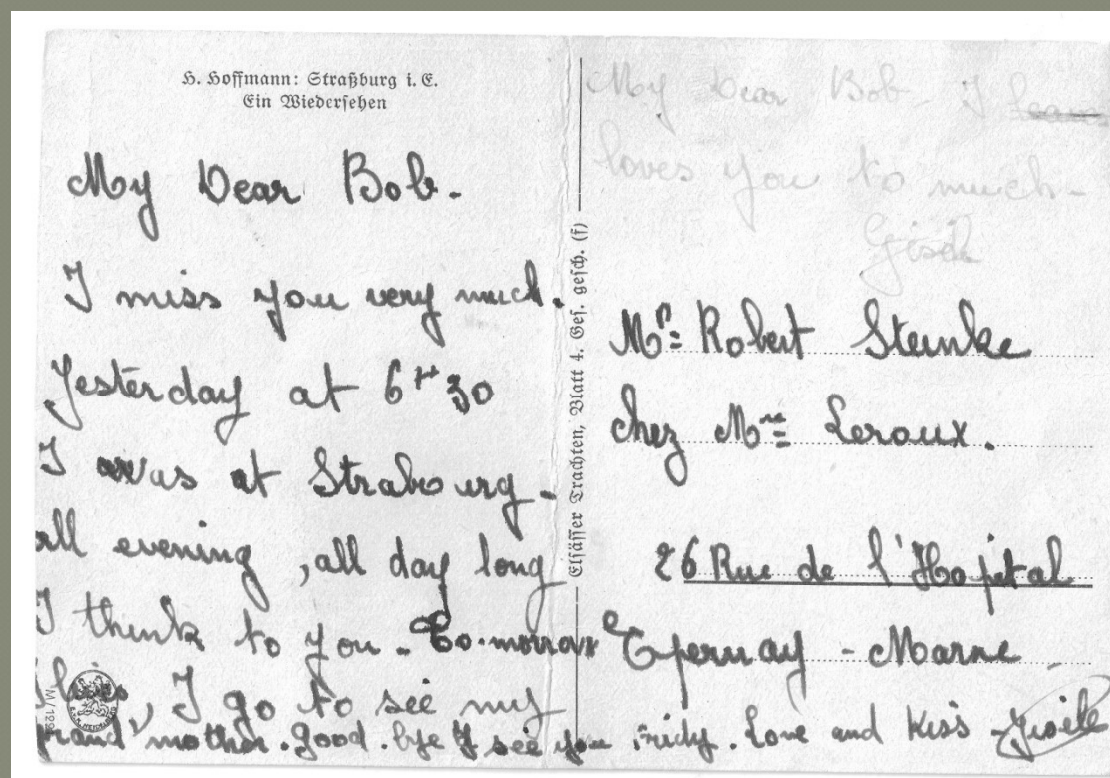 H. Hoffmann: Straßburg i. E.
Ein Wiedersehen
My Dear Bob.
I miss you very much.
Yesterday at 6H30
I was at Strabourg -
all evening, all day long
I think to you. To-morrow
I go to see my
grand'mother. good. bye I see you . Love and Kiss - Gisèle
Elsässer Trachten, Blatt 4. Ges. gesch. (f)
My Dear Bob - I
loves you to much -
Gisèle
Mr Robert Steinke
chez Mme Leroux.
26 Rue de l'Hopital
Epernay - Marne